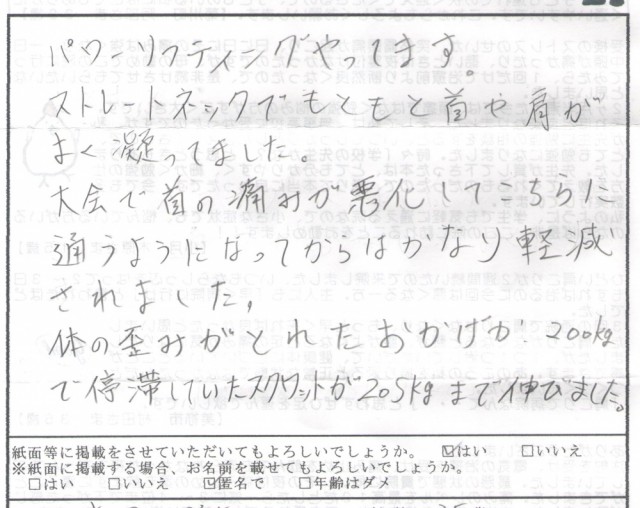 パワーリフティングやってます。
ストレートネックでもともと首や肩が
よく凝ってました。
大会で首の痛みが悪化してこちらに
通うようになってからはかなり軽減
されました。
体の歪みがとれたおかげか、200kg
で停滞していたスクワットが205kgまで伸びました。
紙面等に掲載をさせていただいてもよろしいでしょうか。 ☑はい □いいえ
※紙面に掲載する場合、お名前を載せてもよろしいでしょうか。
□はい □いいえ ☑匿名で □年齢はダメ